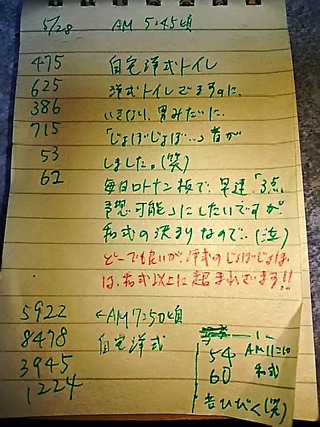 5/28 AM 5:45頃
475 自宅洋式トイレ
625 洋式トイレでますのに、
386 いきなり、男みたいに
715 「じょぼじょぼ…」音が
53 しました。(笑)
62 毎日ロトナン板で、早速「3点
予想可能」にしたいですが
和式の決まりなので、(泣)
どーでも良いが、洋式のじょぼじょぼ
は、和式以上に恵まれてます!!
5922 ←AM7:50頃
8478 自宅洋式
3945
1224
54 AM11:10
60 和式
音ひびく(笑)